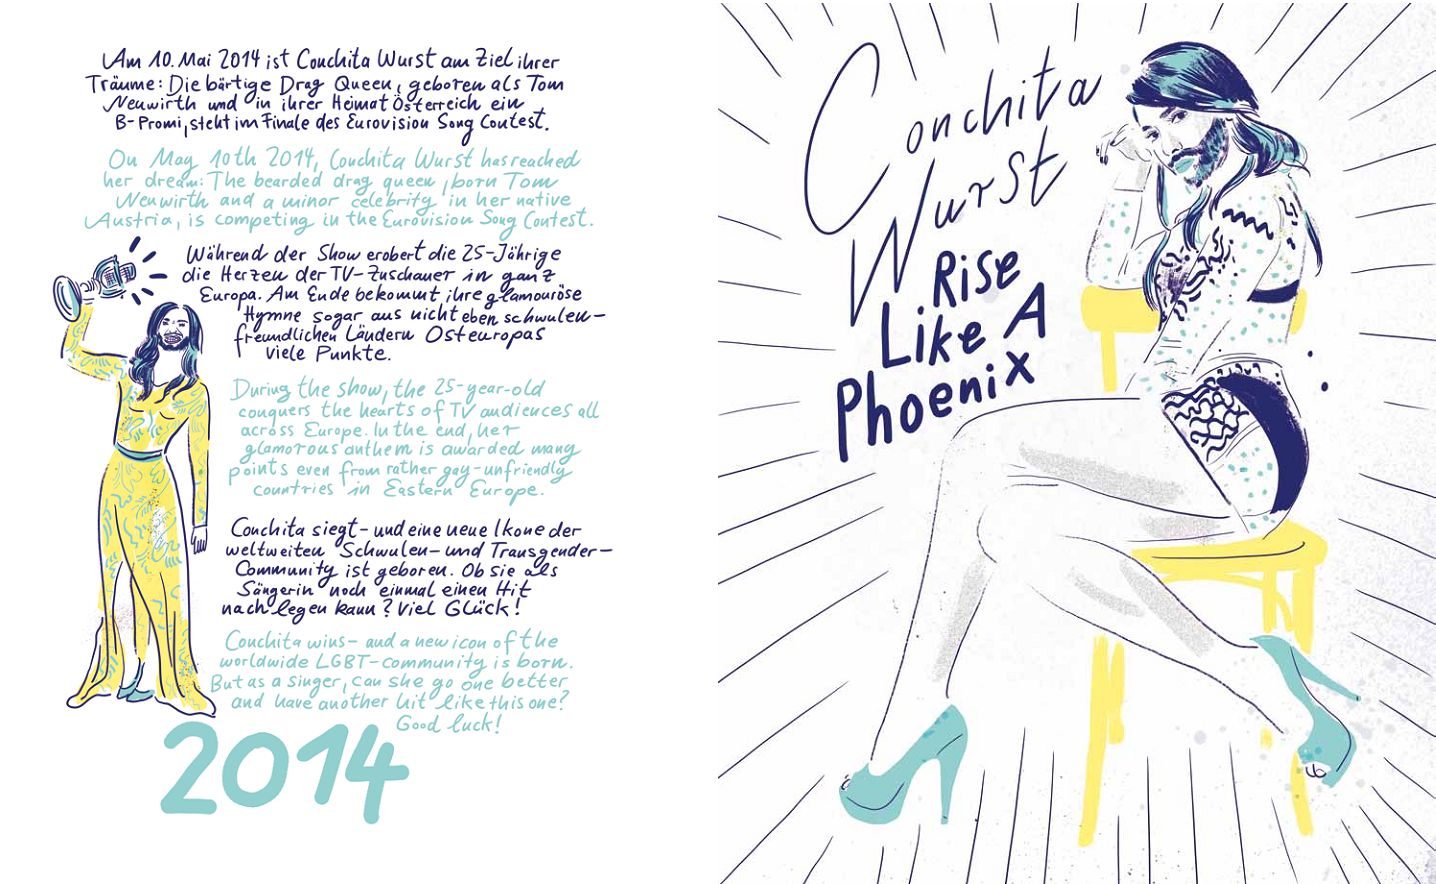 Am 10. Mai 2014 ist Conchita Wurst am Ziel ihrer
Träume: Die bärtige Drag Queen, geboren als Tom
Neuwirth und in ihrer Heimat Österreich ein
B-Promi, steht im Finale des Eurovision Song Contest.
On May 10th 2014, Conchita Wurst has reached
her dream: The bearded drag queen, born Tom
Neuwirth and a minor celebrity in her native
Austria, is competing in the Eurovision Song Contest.
Während der Show erobert die 25-Jährige
die Herzen der TV-Zuschauer in ganz
Europa. Am Ende bekommt ihre glamouröse
Hymne sogar aus nicht eben schwulen-
freundlichen Ländern Osteuropas
viele Punkte.
During the show, the 25-year-old
conquers the hearts of TV audiences all
across Europe. In the end, her
glamorous anthem is awarded many
points even from rather gay-unfriendly
countries in Eastern Europe.
Conchita siegt - und eine neue Ikone der
weltweiten Schwulen- und Transgender-
Community ist geboren. Ob sie als
Sängerin noch einmal einen Hit
nachlegen kann? Viel Glück!
Conchita wins - and a new icon of the
worldwide LGBT-community is born.
But as a singer, can she go one better
and have another hit like this one?
Good luck!
2014
Conchita
Wurst
Rise
Like A
Phoenix